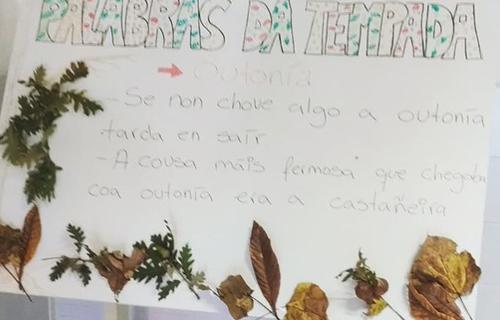 PALABRAS DA TEMPADA
→ Outonía
- Se non chove algo a outonía
tarda en saír
- A cousa máis fermosa que chegaba
coa outonía era a castañeira